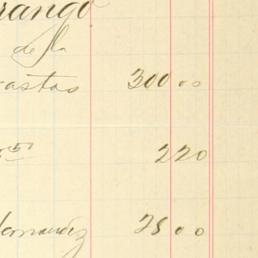 rango
de la
castas 300 00
220
Hernandez 25 00